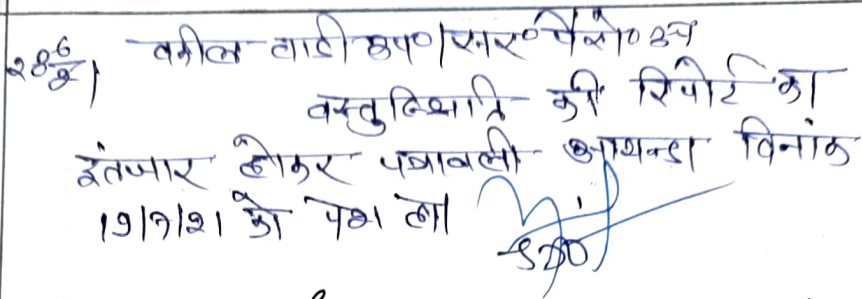 वकील वादी उप०।सर० पैरो० उप
वस्तुस्थिति की रिपोर्ट का
इंतजार होकर पत्रावली आयन्दा दिनांक
19/7/21 को पेश हो।
SDO